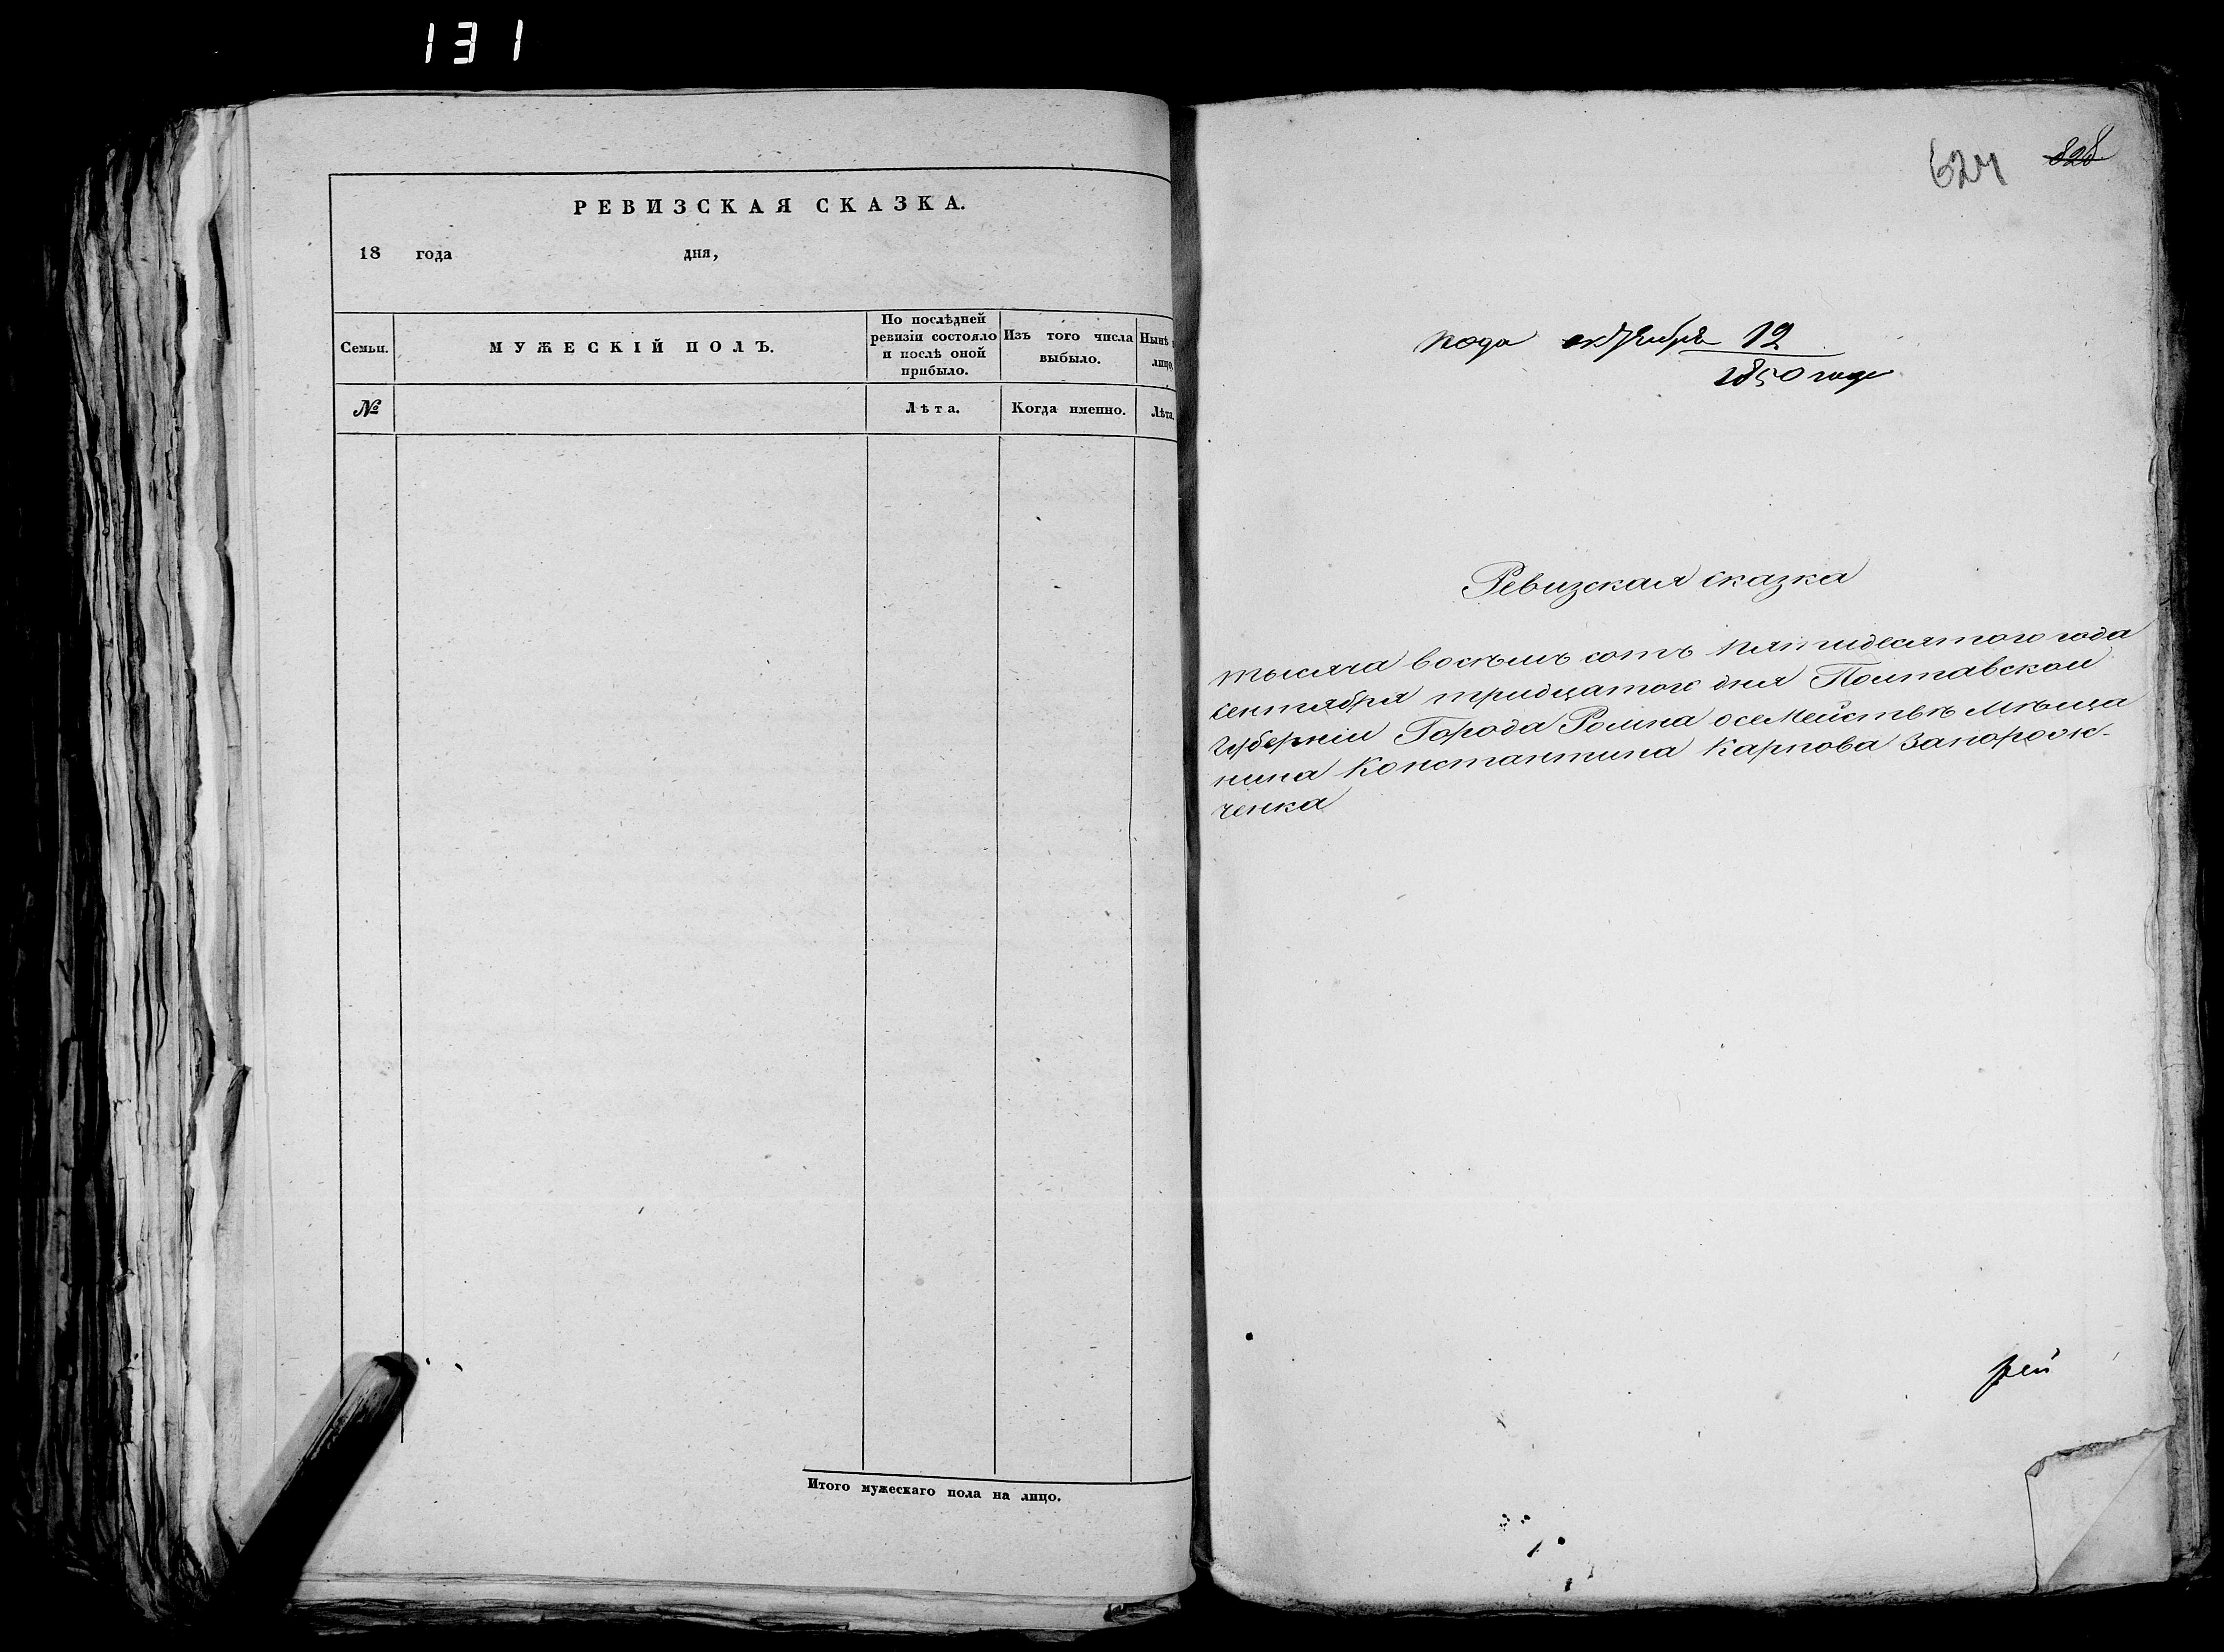 131
РЕВИЗСКАЯ СКАЗКА.
18 года дня,
Семьи.
МУЖЕСКІЙ ПОЛЪ.
По послѣдней ревизіи состояло и послѣ оной прибыло.
Изъ того числа выбыло.
Нынѣ
лицо.
№
Лѣта.
Когда именно.
Лѣта.
Итого мужескаго пола на лицо.
624 828
октября 12
1850 года
Ревизская сказка
тысяча восѣмъ сотъ пятидесятого года
сентября тридцатого дня Полтавской
Губерніи Города Ромна о семействѣ мѣща
нина Константина Карпова Запорож-
ченка